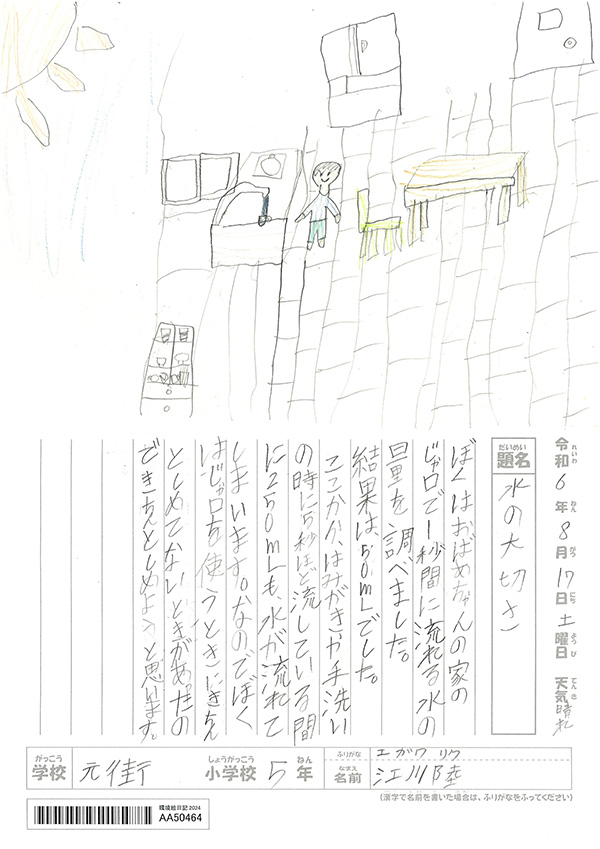 令和6年8月17日土曜日 天気晴れ
れいわ ねん がつ にち ようび てんき
だいめい
題名
水の大切さ
ぼくはおばあちゃんの家の
じゃ口で1秒間に流れる水の
量を調べました。
結果は、50mLでした。
ここから、はみがきか手洗い
の時に5秒ほど流している間
に250mLも水が流れて
しまいます。なのでぼく
はじゃ口を使うときにきちん
としめてないときがあったの
できちんとしめようと思います。
がっこう
学校
元街
しょうがっこう
小学校
5
ねん
年
ふりがな
エガワ リク
なまえ
名前
江川陸
(漢字で名前を書いた場合は、ふりがなをふってください)
環境絵日記2024
AA50464